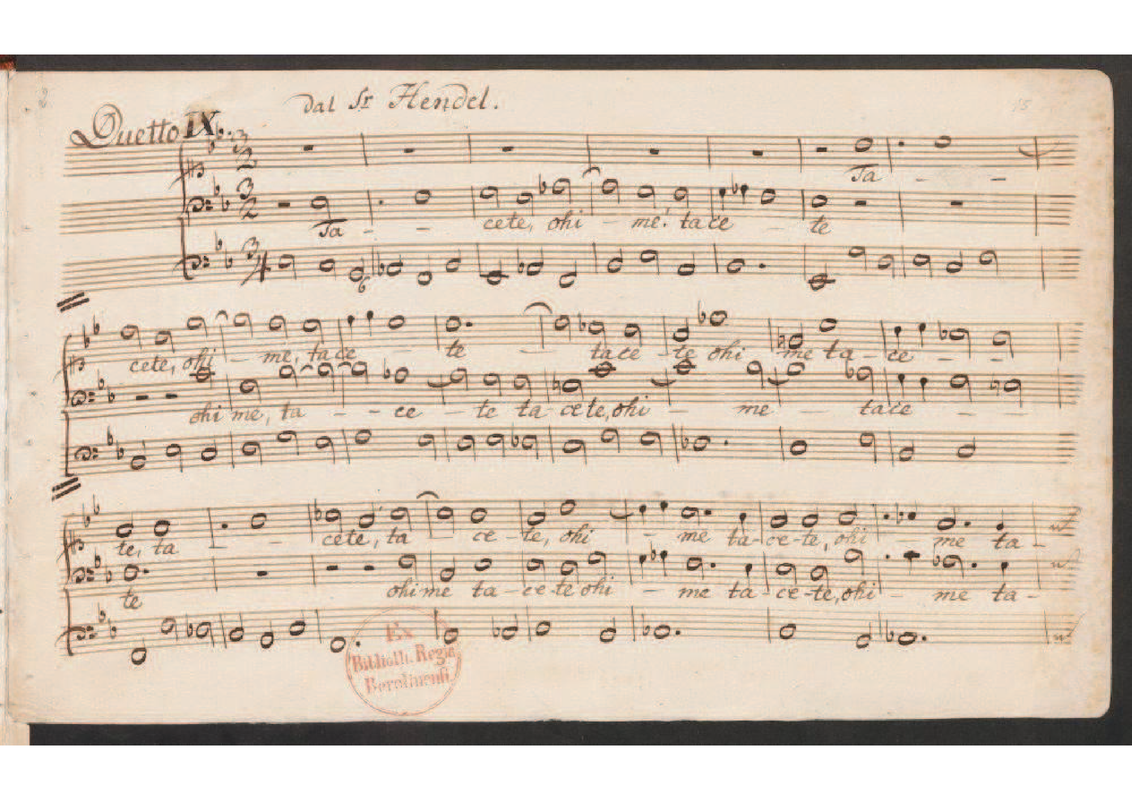 dal Sr Hendel.
Duetto IX.
3 2
Ta - - -
3 2
Ta - - cete, ohi - me! tace - te
3 4
6
cete, ohi - me, tace - te - tace - te ohi me ta - ce - -
ohi me, ta - - ce - te ta cete, ohi - me - tace -
te, ta - - cete, ta - ce - te, ohi - me ta - ce - te, ohi - me ta -
te ohi me ta - ce - te ohi - me ta - ce - te, ohi - me ta -
Ex
Biblioth. Regia
Berolinensi.